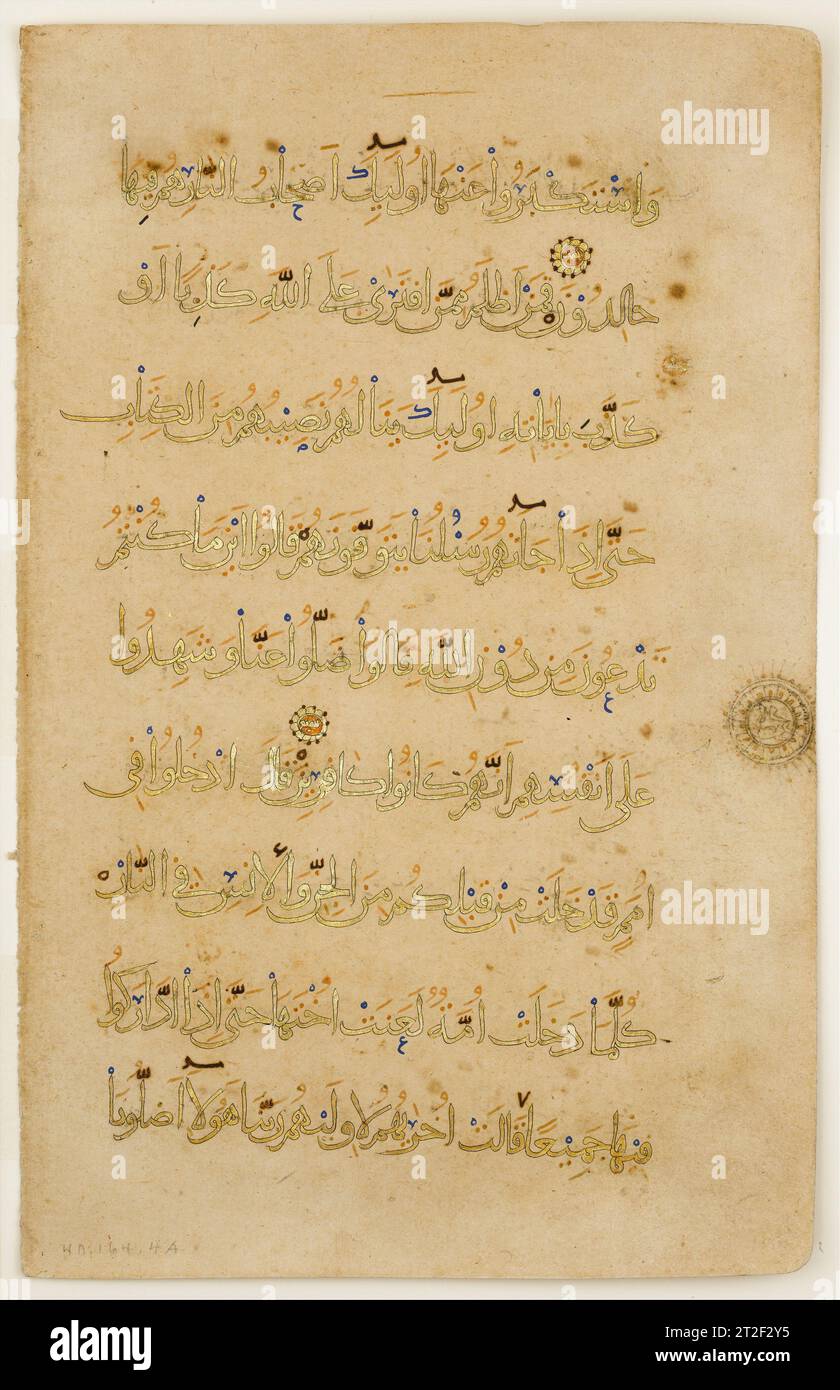 وَاسْتَكْبَرُوا عَنْهَا أُولَئِكَ أَصْحَابُ النَّارِ هُمْ فِيهَا
خَالِدُونَ فَمَنْ أَظْلَمُ مِمَّنِ افْتَرَى عَلَى اللَّهِ كَذِبًا أَوْ
كَذَّبَ بِآيَاتِهِ أُولَئِكَ يَنَالُهُمْ نَصِيبُهُمْ مِنَ الْكِتَابِ
حَتَّى إِذَا جَاءَتْهُمْ رُسُلُنَا يَتَوَفَّوْنَهُمْ قَالُوا أَيْنَ مَا كُنْتُمْ
تَدْعُونَ مِنْ دُونِ اللَّهِ قَالُوا ضَلُّوا عَنَّا وَشَهِدُوا
عَلَى أَنْفُسِهِمْ أَنَّهُمْ كَانُوا كَافِرِينَ قَالَ ادْخُلُوا فِي
أُمَمٍ قَدْ خَلَتْ مِنْ قَبْلِكُمْ مِنَ الْجِنِّ وَالْإِنْسِ فِي النَّارِ
كُلَّمَا دَخَلَتْ أُمَّةٌ لَعَنَتْ أُخْتَهَا حَتَّى إِذَا ادَّارَكُوا
فِيهَا جَمِيعًا قَالَتْ أُخْرَاهُمْ لِأُولَاهُمْ رَبَّنَا هَؤُلَاءِ أَضَلُّونَا
alamy
Image ID: T2F2Y5
www.alamy.com